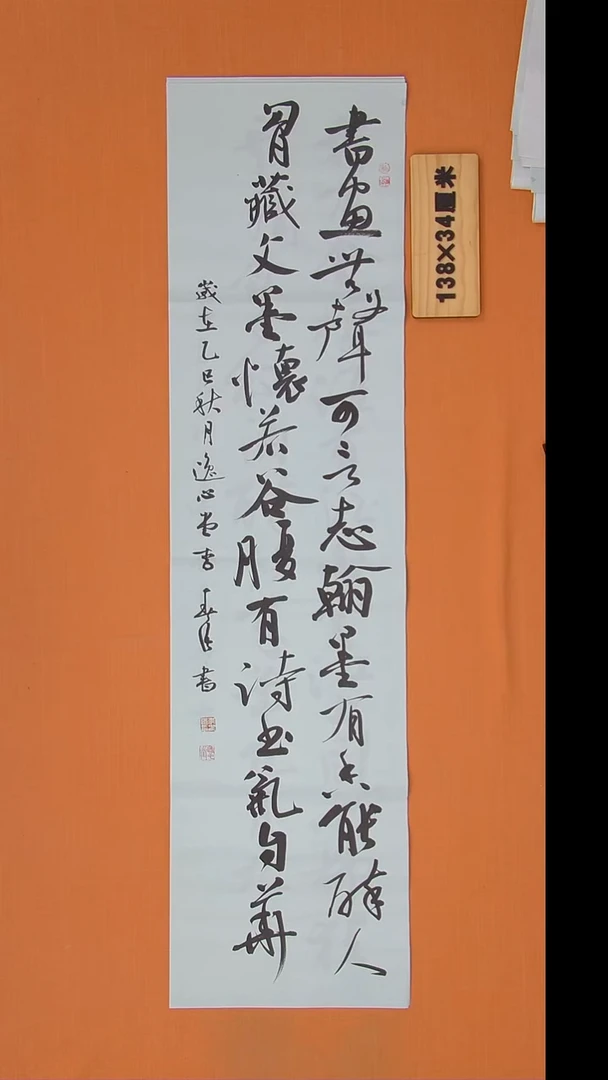 書畫無聲可言志翰墨有香能醉人
胃藏文墨懷若谷腹有詩书氣自華
歲在乙巳秋月逸心堂書 春月 書
138×34厘米